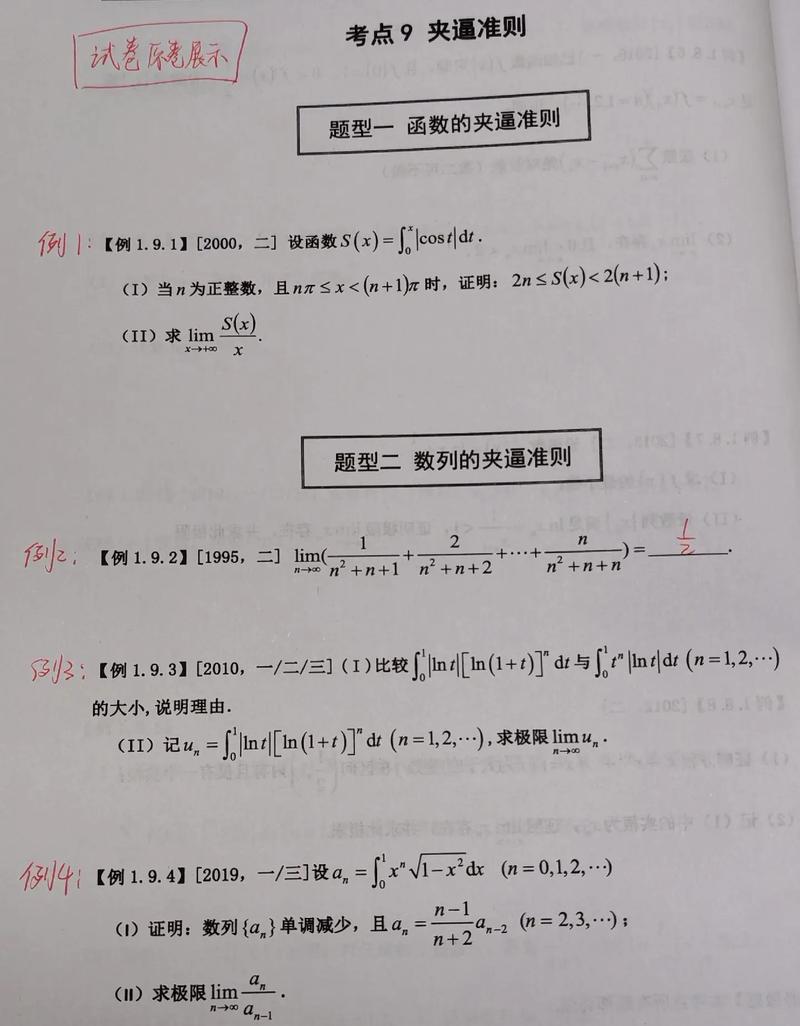 考点9 夹逼准则
试卷原卷展示
题型一 函数的夹逼准则
例1: 【例 1.9.1】[2000, 二] 设函数 S(x)=∫₀ˣ|cos t|dt.
(I) 当 n 为正整数, 且 nπ ≤ x < (n+1)π 时, 证明: 2n ≤ S(x) < 2(n+1);
(II) 求 lim_{x→+∞} S(x)/x.
题型二 数列的夹逼准则
例2: 【例 1.9.2】[1995, 二] lim_{n→∞}(1/(n²+n+1) + 2/(n²+n+2) + ⋯ + n/(n²+n+n)) = 1/2.
例3: 【例 1.9.3】[2010, 一/二/三] (I) 比较 ∫₀¹|ln t|[ln(1+t)]ⁿ dt 与 ∫₀¹ tⁿ|ln t|dt (n=1,2,⋯)
的大小, 说明理由.
(II) 记 uₙ = ∫₀¹|ln t|[ln(1+t)]ⁿ dt (n=1,2,⋯), 求极限 lim_{n→∞} uₙ.
例4: 【例 1.9.4】[2019, 一/三] 设 aₙ = ∫₀¹ xⁿ√(1−x²)dx (n=0,1,2,⋯)
(I) 证明: 数列{aₙ}单调减少, 且 aₙ = (n−1)/(n+2) aₙ₋₂ (n=2,3,⋯);
(II) 求极限 lim_{n→∞} aₙ/aₙ₋₁.